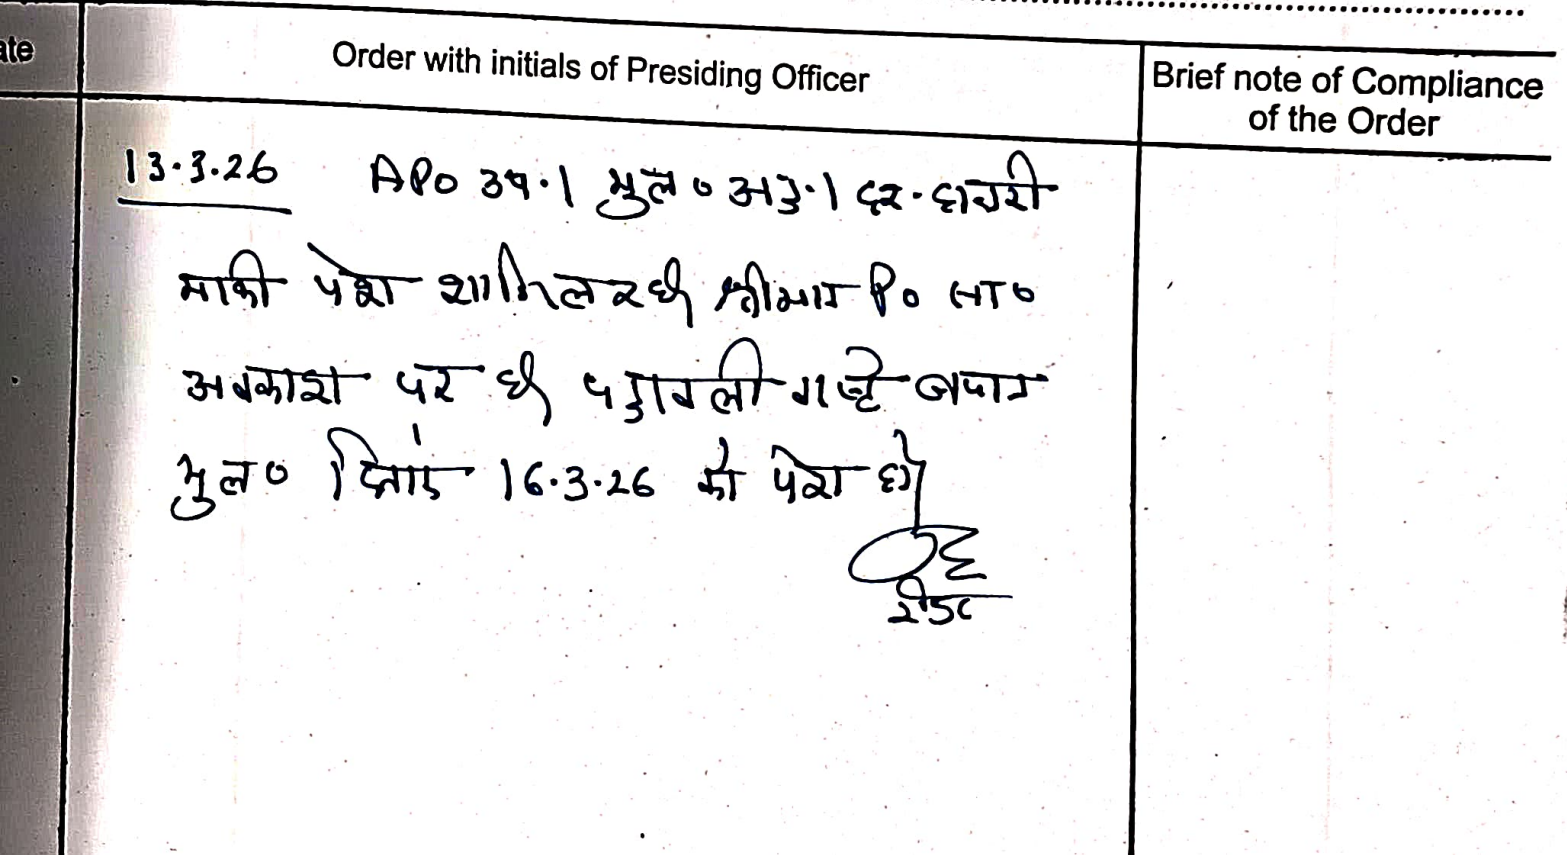 ate
Order with initials of Presiding Officer
Brief note of Compliance
of the Order
13.3.26 APO उप.। मुल० अनु.। दर. हाजरी
माफी पेश शामिल रहे श्रीमान P० सा०
अवकाश पर है पत्रावली वास्ते बयान
मुल० दिनांक 16.3.26 को पेश हो
रीडर